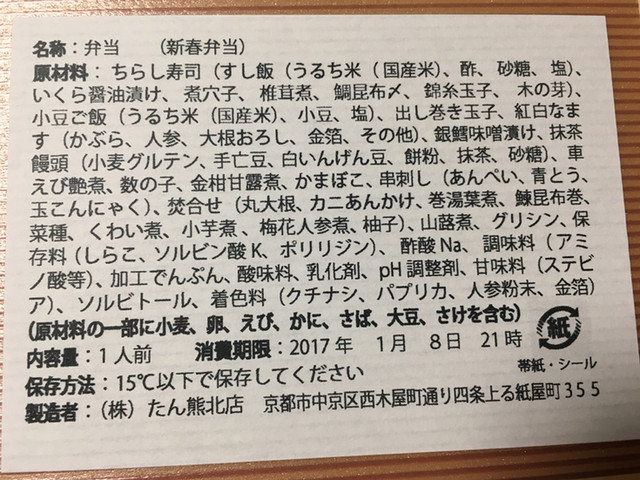 名称：弁当　（新春弁当）
原材料：ちらし寿司（すし飯（うるち米（国産米）、酢、砂糖、塩）、
いくら醤油漬け、煮穴子、椎茸煮、鯛昆布〆、錦糸玉子、木の芽）、
小豆ご飯（うるち米（国産米）、小豆、塩）、出し巻き玉子、紅白なま
す（かぶら、人参、大根おろし、金箔、その他）、銀鱈味噌漬け、抹茶
饅頭（小麦グルテン、手亡豆、白いんげん豆、餅粉、抹茶、砂糖）、車
えび艶煮、数の子、金柑甘露煮、かまぼこ、串刺し（あんぺい、青とう、
玉こんにゃく）、焚合せ（丸大根、カニあんかけ、巻湯葉煮、鰊昆布巻、
菜種、くわい煮、小芋煮、梅花人参煮、柚子）、山蕗煮、グリシン、保
存料（しらこ、ソルビン酸K、ポリリジン）、酢酸Na、調味料（アミ
ノ酸等）、加工でんぷん、酸味料、乳化剤、pH調整剤、甘味料（ステビ
ア）、ソルビトール、着色料（クチナシ、パプリカ、人参粉末、金箔）
（原材料の一部に小麦、卵、えび、かに、さば、大豆、さけを含む）
内容量：1人前　消費期限：2017年　1月　8日　21時
紙
帯紙・シール
保存方法：15℃以下で保存してください
製造者：（株）たん熊北店　京都市中京区西木屋町通り四条上る紙屋町355